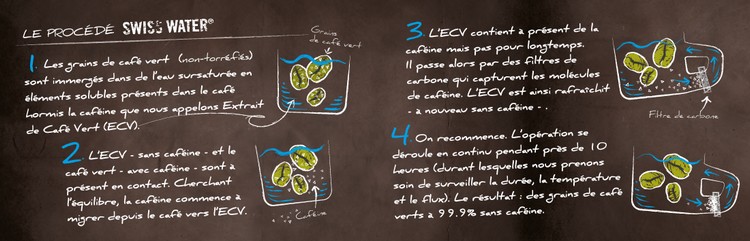 LE PROCÉDÉ SWISS WATER®
Grains
de café vert
1. Les grains de café vert (non-torréfiés)
sont immergés dans de l'eau sursaturée en
éléments solubles présents dans le café
hormis la caféine que nous appelons Extrait
de Café Vert (ECV).
2. L'ECV - sans caféine - et le
café vert - avec caféine - sont à
présent en contact. Cherchant
l'équilibre, la caféine commence à
migrer depuis le café vers l'ECV.
Caféine
3. L'ECV contient à présent de la
caféine mais pas pour longtemps.
Il passe alors par des filtres de
carbone qui capturent les molécules
de caféine. L'ECV est ainsi rafraîchit
- à nouveau sans caféine - .
Filtre de carbone
4. On recommence. L'opération se
déroule en continu pendant près de 10
heures (durant lesquelles nous prenons
soin de surveiller la durée, la température
et le flux). Le résultat : des grains de café
verts à 99.9% sans caféine.